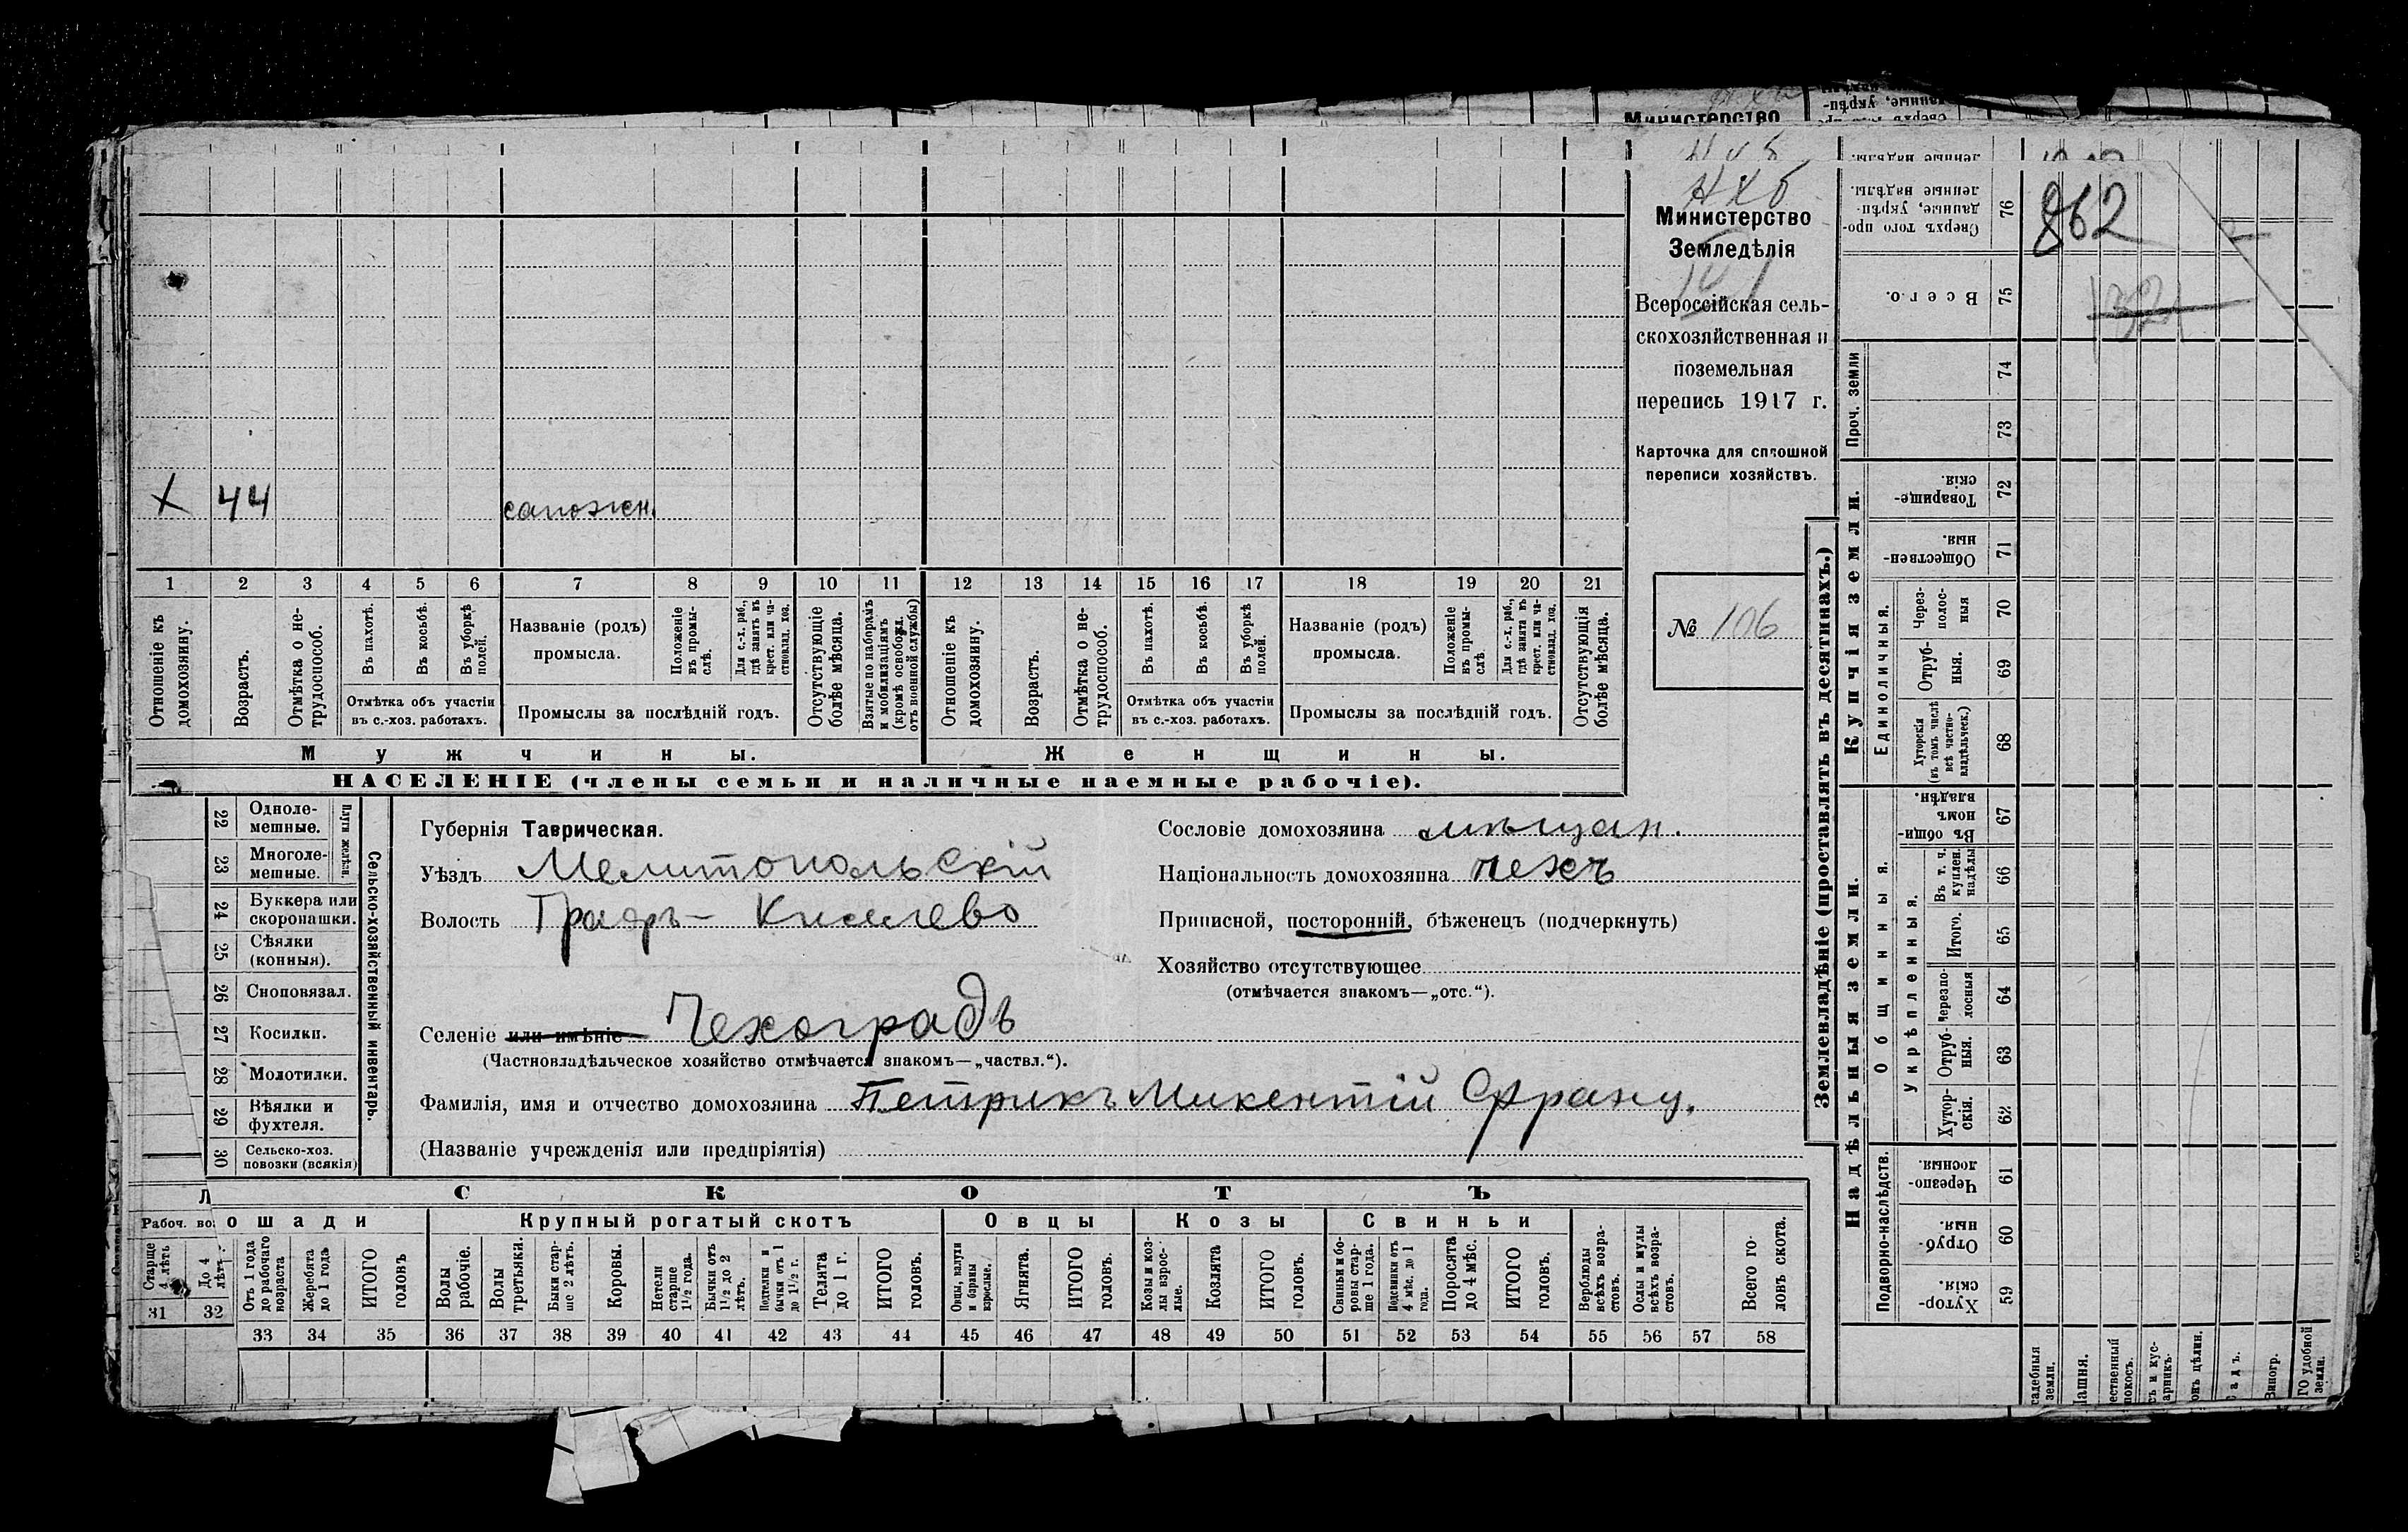 Министерство
НХб
Министерство
Земледѣлія
Всероссійская сель-
скохозяйственная и
поземельная
перепись 1917 г.
Карточка для сплошной
переписи хозяйствъ.
№ 106
Х 44 сапожн.
1 2 3 4 5 6 7 8 9 10 11 12 13 14 15 16 17 18 19 20 21
Отношеніе къ домохозяину.
Возрастъ.
Отмѣтка о не-трудоспособ.
Въ пахотѣ.
Въ косьбѣ.
Въ уборкѣ полей.
Отмѣтка объ участіи
въ с.-хоз. работахъ.
Названіе (родъ)
промысла.
Положеніе въ промы-слѣ.
Для с.-х. раб., гдѣ занятъ въ крест. или ча-стновлад. хоз.
Промыслы за послѣдній годъ.
Отсутствующіе болѣе мѣсяца.
Взятые по наборамъ и мобилизаціямъ (кромѣ освобожд. отъ военной службы)
Отношеніе къ домохозяину.
Возрастъ.
Отмѣтка о не-трудоспособ.
Въ пахотѣ.
Въ косьбѣ.
Въ уборкѣ полей.
Отмѣтка объ участіи
въ с.-хоз. работахъ.
Названіе (родъ)
промысла.
Положеніе въ промы-слѣ.
Для с.-х. раб., гдѣ занята въ крест. или ча-стновлад. хоз.
Промыслы за послѣдній годъ.
Отсутствующія болѣе мѣсяца.
Мужчины. Женщины.
НАСЕЛЕНІЕ (члены семьи и наличные наемные рабочіе).
22 Одноле-мешные.
23 Многоле-мешные.
Плуги желѣзн.
24 Буккера или скоропашки.
25 Сѣялки (конныя).
26 Сноповязал.
27 Косилки.
28 Молотилки.
29 Вѣялки и фухтеля.
30 Сельско-хоз. повозки (всякія)
Сельско-хозяйственный инвентарь.
Губернія Таврическая.
Уѣздъ Мелитопольскій
Волость Графъ-Киселево
Селеніе или имѣніе Чехоградъ
(Частновладѣльческое хозяйство отмѣчается знакомъ—„частвл.“).
Фамилія, имя и отчество домохозяина Петрикъ Микентій Франц.
(Названіе учрежденія или предпріятія)
Сословіе домохозяина мѣщан.
Національность домохозяина чехъ
Приписной, посторонній, бѣженецъ (подчеркнуть)
Хозяйство отсутствующее
(отмѣчается знакомъ—„отс.“).
СКОТЪ
Лошади
Рабоч. во
Крупный рогатый скотъ
Овцы
Козы
Свиньи
Старше 4 лѣтъ
До 4 лѣтъ
Отъ 1 года до рабочаго возраста
Жеребята до 1 года
ИТОГО головъ
Волы рабочіе.
Волы третьяки.
Быки стар-ше 2 лѣтъ.
Коровы.
Нетели старше 1½ года.
Бычки отъ 1½ до 2 лѣтъ.
Подтелки и бычки отъ 1 до 1½ г.
Телята до 1 г.
ИТОГО головъ.
Овцы, валухи и бараны взрослые.
Ягнята.
ИТОГО головъ.
Козы и коз-лы взрос-лые.
Козлята
ИТОГО головъ.
Свиньи и бо-ровы стар-ше 1 года.
Подсвинки отъ 4 мѣс. до 1 года.
Поросята до 4 мѣс.
ИТОГО головъ.
Верблюды всѣхъ возра-стовъ.
Ослы и мулы всѣхъ возра-стовъ.
Всего го-ловъ скота.
31 32 33 34 35 36 37 38 39 40 41 42 43 44 45 46 47 48 49 50 51 52 53 54 55 56 57 58
Землевладѣніе (проставлять въ десятинахъ.)
Купчія земли.
Надѣльныя земли.
Сверхъ того про-данные, укрѣп-ленные надѣлы. 76
862
Всего. 75
1321
Проч. земли 74
73
Товарище-скія. 72
Обществен-ныя. 71
Единоличныя.
Через-полос-ныя 70
Отруб-ныя. 69
Хуторскія (въ томъ числѣ всѣ частно-владѣльческ.) 68
Общинныя.
Въ общи-номъ владѣн. 67
Укрѣпленныя.
Въ т. ч. куплен. надѣлы 66
Итого. 65
Черезпо-лосныя 64
Отруб-ныя. 63
Хутор-скія. 62
Подворно-наслѣдств.
Черезпо-лосныя 61
Отруб-ныя. 60
Хутор-скія. 59
садебныя земли.
Пашня.
ественный покосъ.
съ и кус-арникъ.
онъ цѣлин.
садъ.
Виногр.
ГО удобной земли.